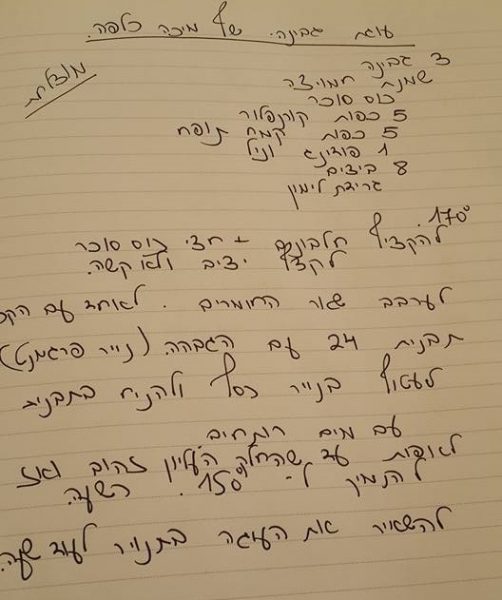 עוגת גבינה. שף מיכה כלפה.
מוצלחת
3 גבינה
שמנת חמוצה
כוס סוכר
5 כפות קורנפלור
5 כפות קמח תופח
1 פודינג וניל
8 ביצים
גרידת לימון
170°.
להקציף חלבונים + חצי כוס סוכר
לקצף יציב ולא קשה.
לערבב שאר החומרים. לאוחד עם הקצ
תבנית 24 עם הגבהה. (נייר פרגמנט)
לעטוף בנייר כסף ולהניח בתבנית
עם מים רותחים.
לאפות עד שהחלק העליון זהוב ואז
להנמיך ל- 150°. השעה.
להשאיר את העוגה בתנור לעוד שעה.